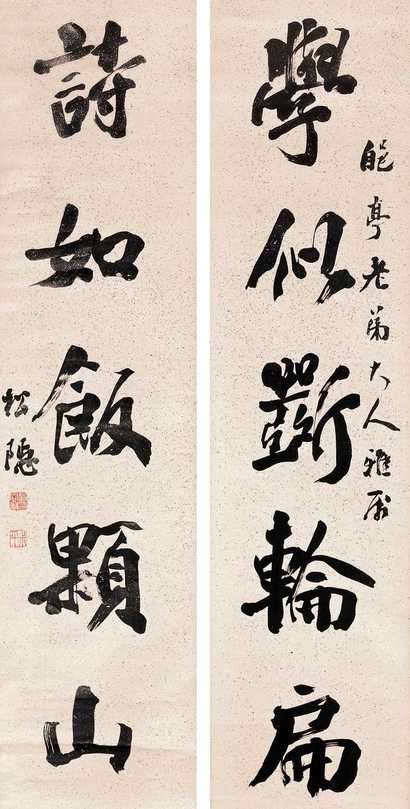 亭老弟大人雅属
學似斲輪扁
詩如飯顆山
松隱